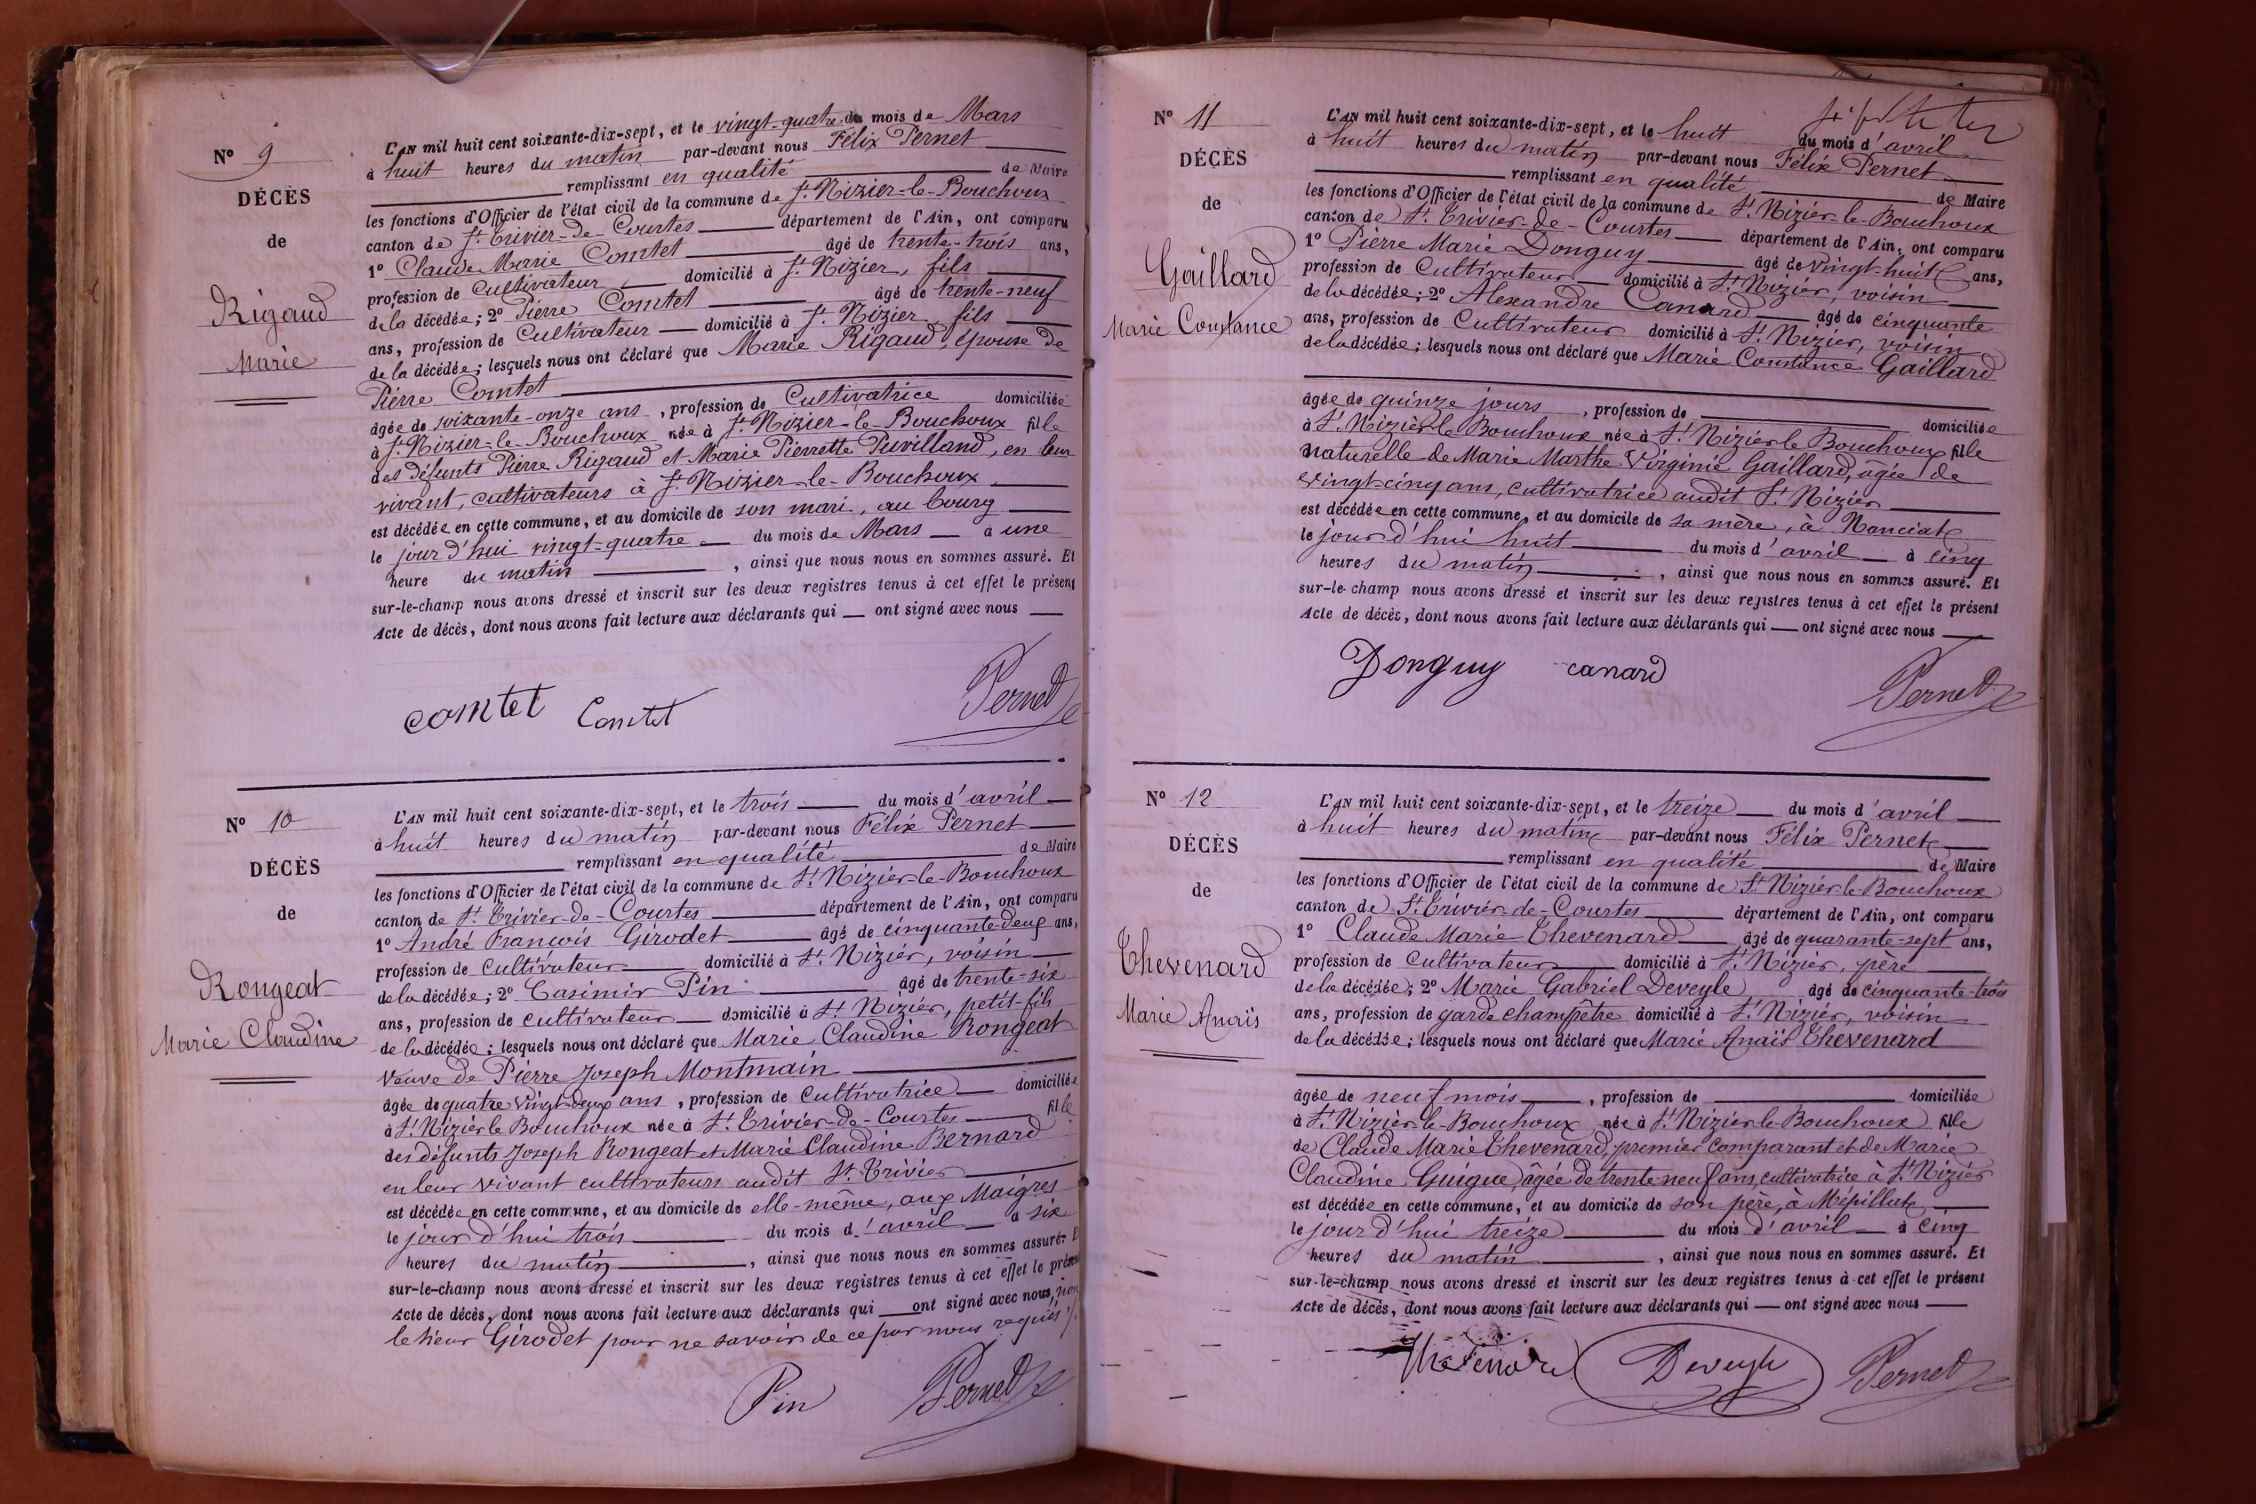 N° 9
DÉCÈS
de
Rigaud
Marie
L'AN mil huit cent soixante-dix-sept, et le vingt-quatre du mois de Mars
à huit heures du matin par-devant nous Félix Pernet
remplissant en qualité de Maire
les fonctions d'Officier de l'état civil de la commune de St Nizier-le-Bouchoux
canton de St Trivier-de-Courtes département de l'Ain, ont comparu
1° Claude Marie Comtet âgé de trente-trois ans,
profession de Cultivateur domicilié à St Nizier, fils
de la décédée; 2° Pierre Comtet âgé de trente-neuf
ans, profession de Cultivateur domicilié à St Nizier, fils
de la décédée; lesquels nous ont déclaré que Marie Rigaud, épouse de
Pierre Comtet
âgée de soixante-onze ans, profession de Cultivatrice domiciliée
à St Nizier-le-Bouchoux née à St Nizier-le-Bouchoux fille
des défunts Pierre Rigaud et Marie Pierrette Puvilland, en leur
vivant, cultivateurs à St Nizier-le-Bouchoux
est décédée en cette commune, et au domicile de son mari, au bourg
le jour d'hui vingt-quatre du mois de Mars à une
heure du matin, ainsi que nous nous en sommes assuré. Et
sur-le-champ nous avons dressé et inscrit sur les deux registres tenus à cet effet le présent
Acte de décès, dont nous avons fait lecture aux déclarants qui ont signé avec nous
comtet Comtet Pernet
N° 10
DÉCÈS
de
Rongeat
Marie Claudine
L'AN mil huit cent soixante-dix-sept, et le trois du mois d'avril
à huit heures du matin par-devant nous Félix Pernet
remplissant en qualité de Maire
les fonctions d'Officier de l'état civil de la commune de St Nizier-le-Bouchoux
canton de St Trivier-de-Courtes département de l'Ain, ont comparu
1° André François Girodet âgé de cinquante-deux ans,
profession de cultivateur domicilié à St Nizier, voisin
de la décédée; 2° Casimir Pin âgé de trente-six
ans, profession de cultivateur domicilié à St Nizier, petit-fils
de la décédée; lesquels nous ont déclaré que Marie Claudine Rongeat
veuve de Pierre Joseph Montmain
âgée de quatre vingt-deux ans, profession de Cultivatrice domiciliée
à St Nizier le Bouchoux née à St Trivier-de-Courtes fille
des défunts Joseph Rongeat et Marie Claudine Bernard
en leur vivant cultivateurs audit St Trivier
est décédée en cette commune, et au domicile de elle-même, aux Maigres
le jour d'hui trois du mois d'avril à six
heures du matin, ainsi que nous nous en sommes assuré. E
sur-le-champ nous avons dressé et inscrit sur les deux registres tenus à cet effet le présen
Acte de décès, dont nous avons fait lecture aux déclarants qui ont signé avec nous, non
le sieur Girodet pour ne savoir de ce par nous requis
Pin Pernet
N° 11
DÉCÈS
de
Gaillard
Marie Constance
L'AN mil huit cent soixante-dix-sept, et le huit du mois d'avril
à huit heures du matin par-devant nous Félix Pernet
remplissant en qualité de Maire
les fonctions d'Officier de l'état civil de la commune de St Nizier-le-Bouchoux
canton de St Trivier-de-Courtes département de l'Ain, ont comparu
1° Pierre Marie Donguy âgé de vingt-huit ans,
profession de Cultivateur domicilié à St Nizier, voisin
de la décédée; 2° Alexandre Canard âgé de cinquante
ans, profession de Cultivateur domicilié à St Nizier, voisin
de la décédée; lesquels nous ont déclaré que Marie Constance Gaillard
âgée de quinze jours, profession de domiciliée
à St Nizier le Bouchoux née à St Nizier le Bouchoux fille
naturelle de Marie Marthe Virginie Gaillard, agée de
vingt-cinq ans, cultivatrice audit St Nizier
est décédée en cette commune, et au domicile de sa mère, à Nanciat
le jour d'hui huit du mois d'avril à cinq
heures du matin, ainsi que nous nous en sommes assuré. Et
sur-le-champ nous avons dressé et inscrit sur les deux registres tenus à cet effet le présent
Acte de décès, dont nous avons fait lecture aux déclarants qui ont signé avec nous
Donguy canard Pernet
N° 12
DÉCÈS
de
Thevenard
Marie Anaïs
L'AN mil huit cent soixante-dix-sept, et le treize du mois d'avril
à huit heures du matin par-devant nous Félix Pernet
remplissant en qualité de Maire
les fonctions d'Officier de l'état civil de la commune de St Nizier-le-Bouchoux
canton de St Trivier-de-Courtes département de l'Ain, ont comparu
1° Claude Marie Thevenard âgé de quarante-sept ans,
profession de Cultivateur domicilié à St Nizier, père
de la décédée; 2° Marie Gabriel Deveyle âgé de cinquante-trois
ans, profession de garde champêtre domicilié à St Nizier, voisin
de la décédée; lesquels nous ont déclaré que Marie Anaïs Thevenard
âgée de neuf mois, profession de domiciliée
à St Nizier-le-Bouchoux née à St Nizier le Bouchoux fille
de Claude Marie Thevenard, premier comparant et de Marie
Claudine Guigue, âgée de trente neuf ans, cultivatrice à St Nizier
est décédée en cette commune, et au domicile de son père, à Mépillat
le jour d'hui treize du mois d'avril à cinq
heures du matin, ainsi que nous nous en sommes assuré. Et
sur-le-champ nous avons dressé et inscrit sur les deux registres tenus à cet effet le présent
Acte de décès, dont nous avons fait lecture aux déclarants qui ont signé avec nous
Thevenard Deveyle Pernet